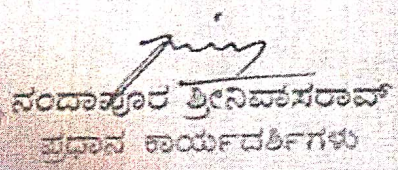 ನಂದಾಪೂರ ಶ್ರೀನಿವಾಸರಾವ್
ಪ್ರಧಾನ ಕಾರ್ಯದರ್ಶಿಗಳು